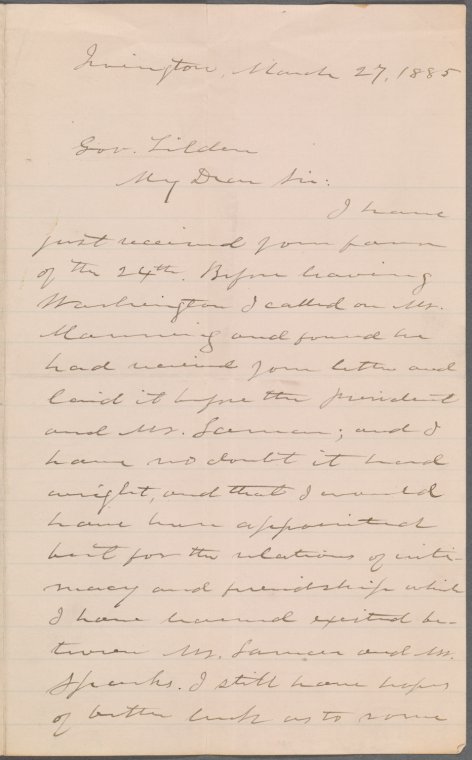 Irvington, March 27, 1885
Gov. Tilden
My Dear Sir:
I have
just received your favor
of the 24th. Before leaving
Washington I called on Mr.
Manning and found he
had received your letter and
laid it before the President
and Mr. Lamar; and I
have no doubt it had
weight, and that I would
have been appointed
but for the relations of inti-
macy and friendship which
I have learned existed be-
tween Mr. Lamar and Mr.
Sparks. I still have hopes
of better luck as to some